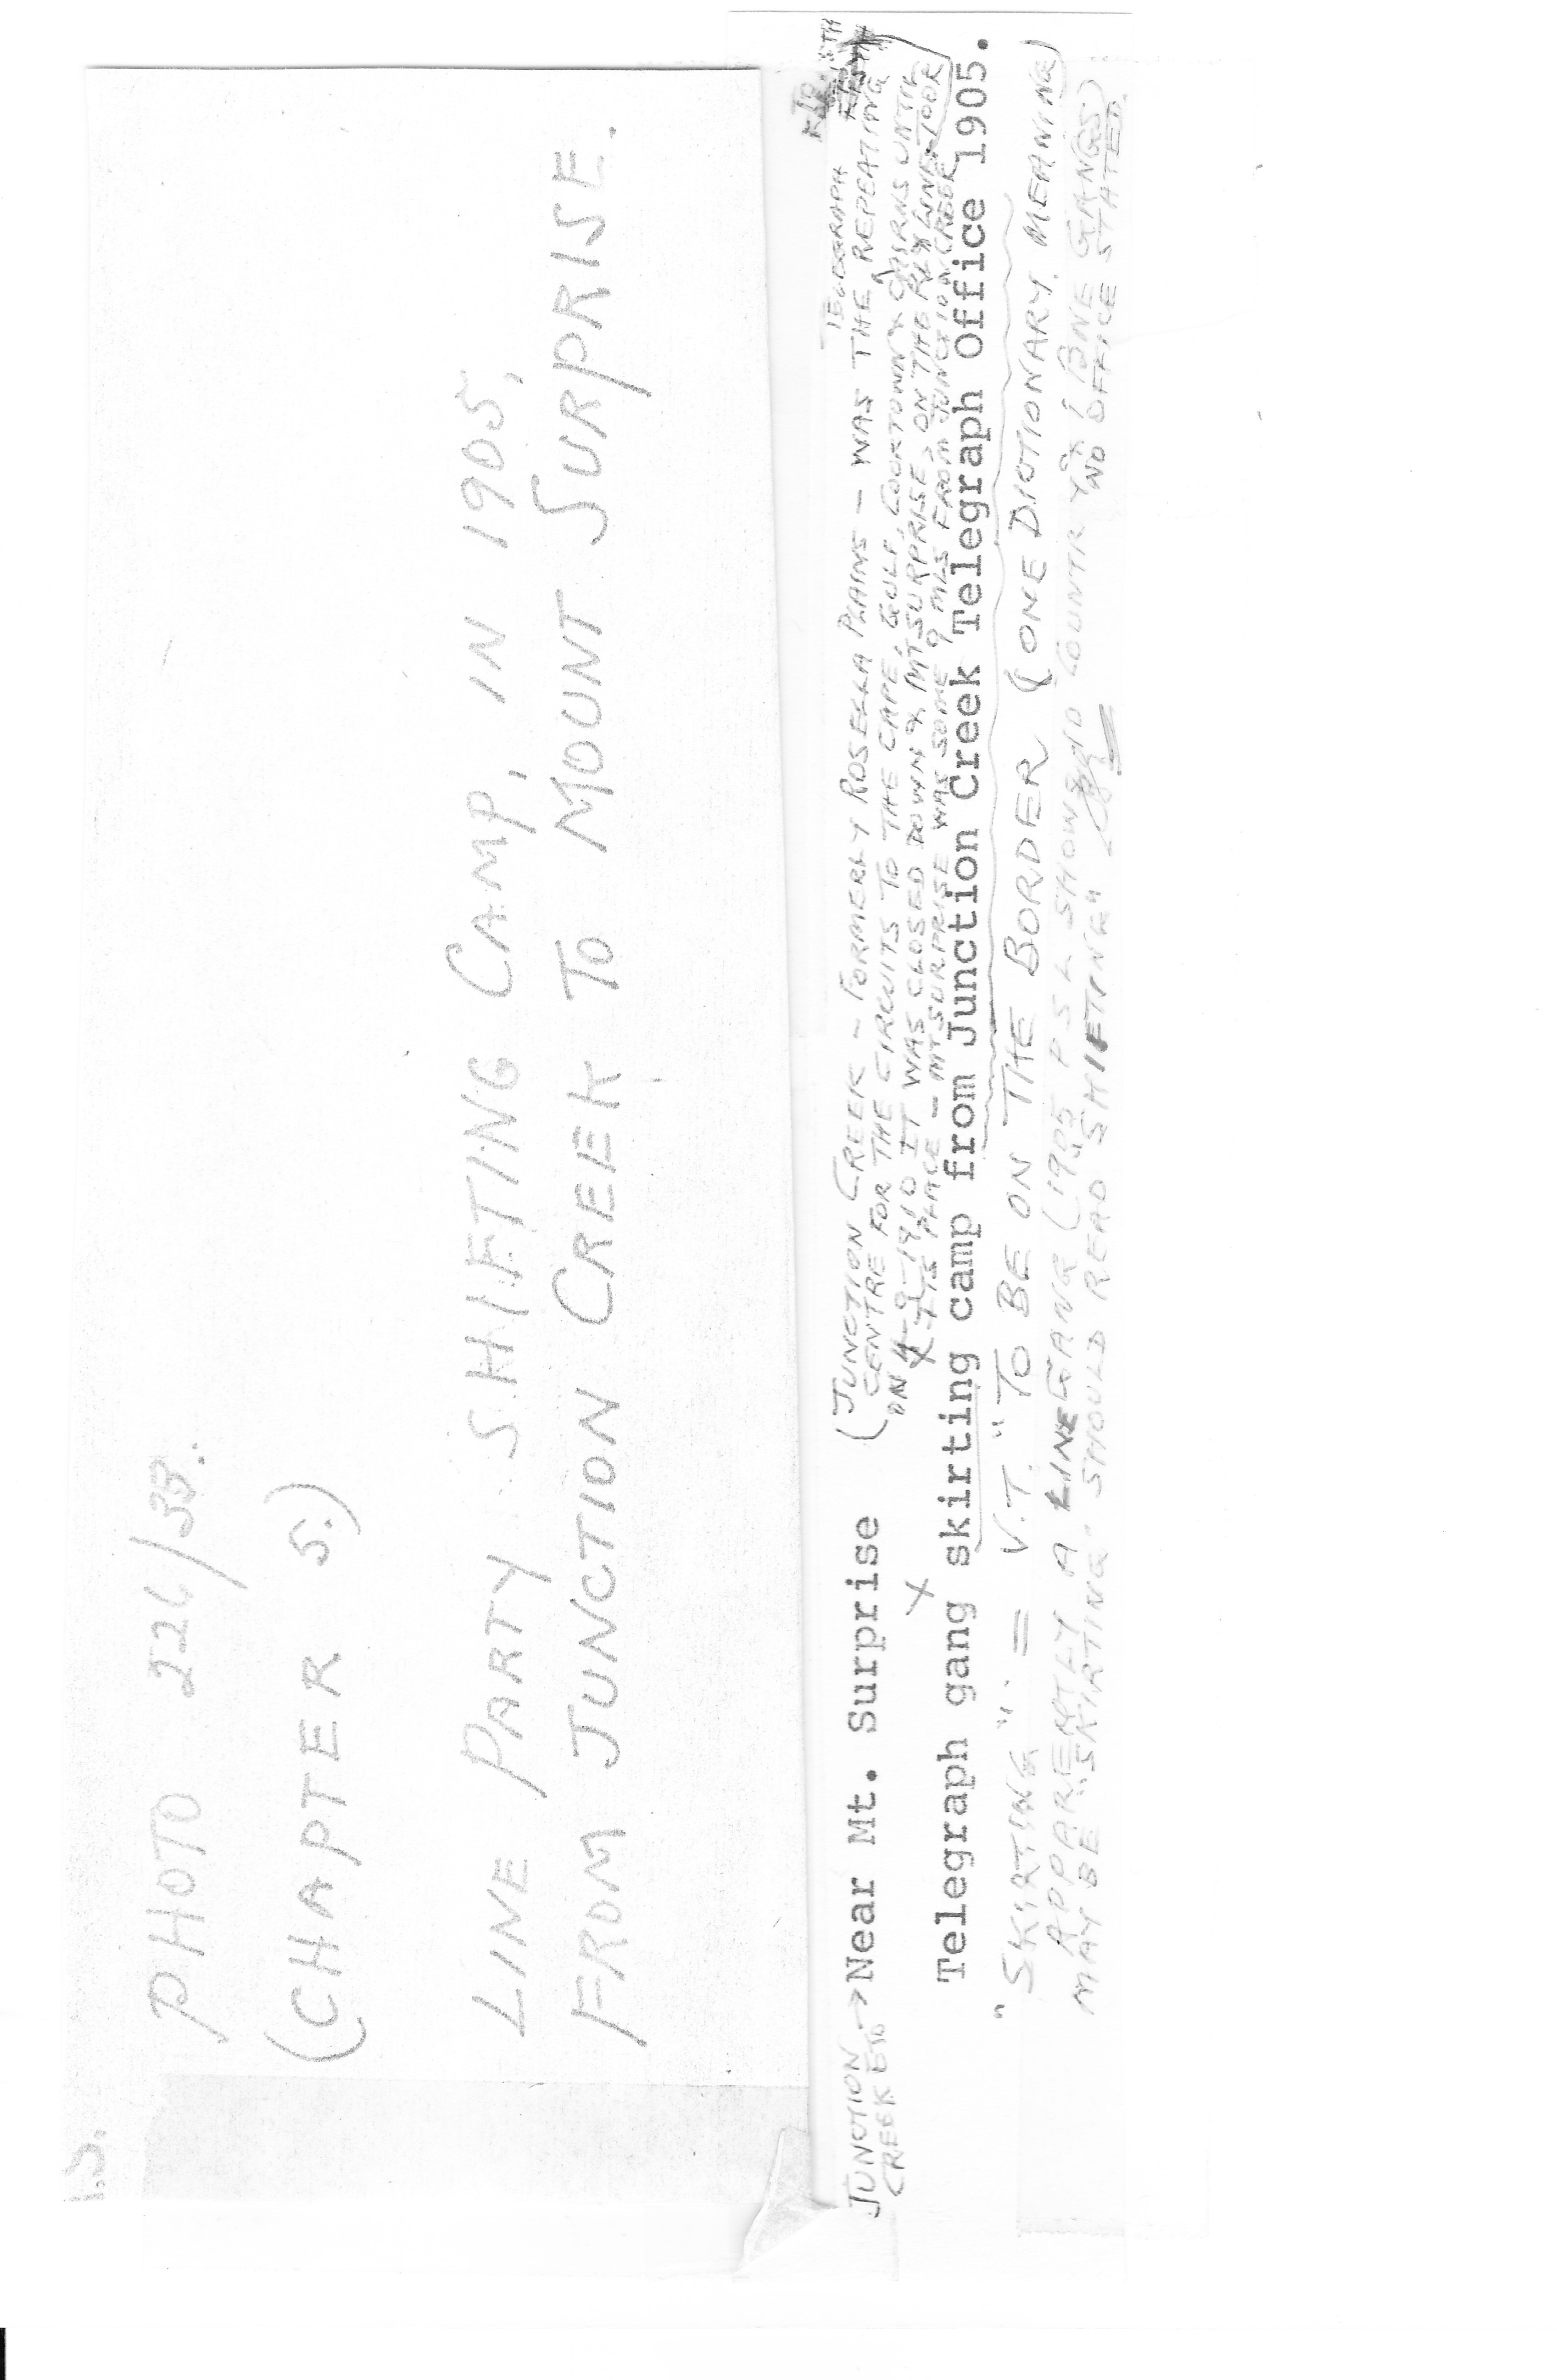 PHOTO 226/38.
(CHAPTER 5.)
LINE PARTY SHIFTING CAMP, IN 1905,
FROM JUNCTION CREEK TO MOUNT SURPRISE.
JUNCTION → Near Mt. Surprise
CREEK ETO
(JUNCTION CREEK - FORMERLY ROSELLA PLAINS - WAS THE TELEGRAPH REPEATING
CENTRE FOR THE CIRCUITS TO THE CAPE, GULF, COOKTOWN & CAIRNS UNTIL
ON 4-9-1910 IT WAS CLOSED DOWN & MT SURPRISE, ON THE RLY LINE, TOOK
ITS PLACE - MT SURPRISE WAS SOME 9 MLS FROM JUNCTION CREEK
Telegraph gang skirting camp from Junction Creek Telegraph Office 1905.
"SKIRTING" = V.T. "TO BE ON THE BORDER (ONE DICTIONARY MEANING)
APPARENTLY A LINE GANG (1905 P S L SHOWS NO COUNTRY LINE GANGS)
MAY BE SKIRTING SHOULD READ SHIFTING" NO OFFICE STATED.